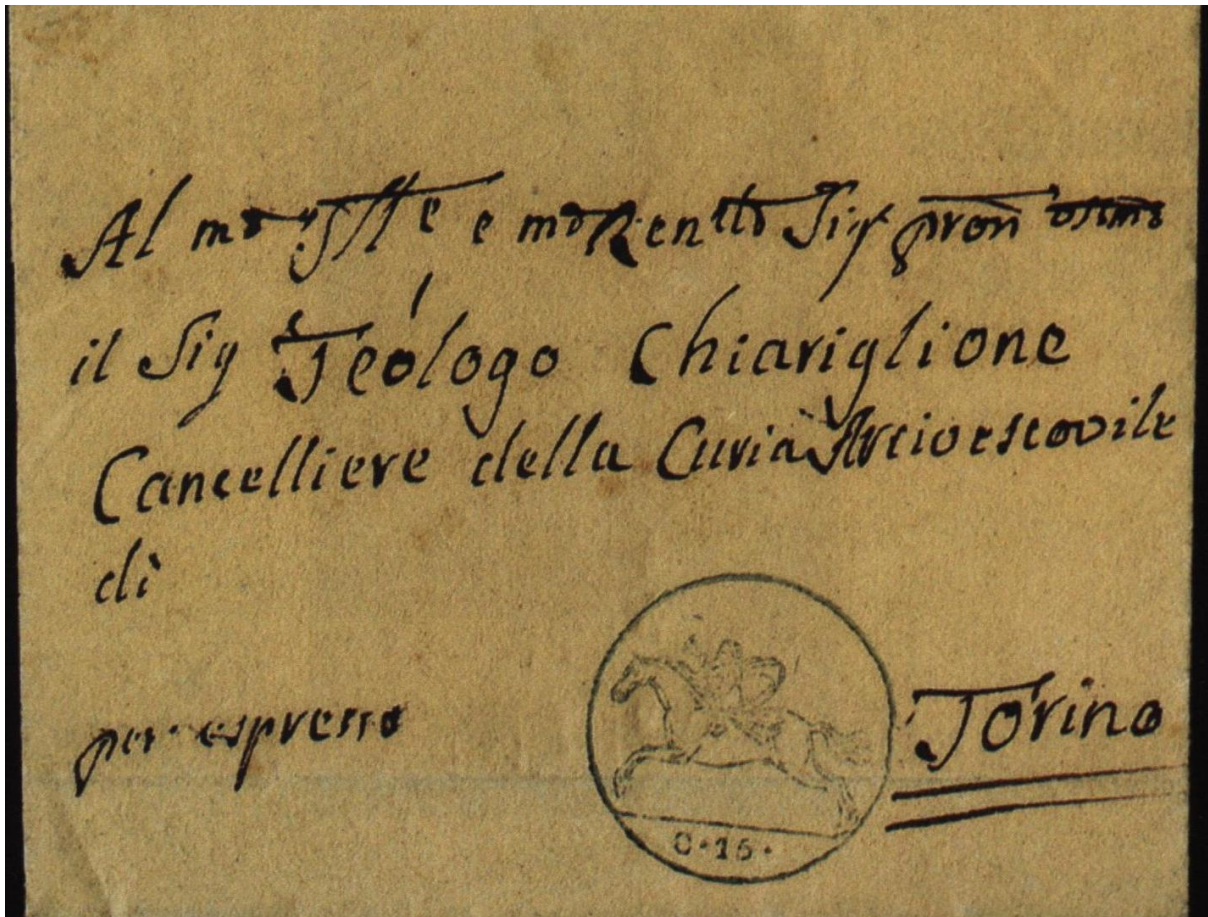 Al mo Ille e mo Rendo Sig pron osmo
il Sig Teólogo Chiariglione
Cancelliere della Curia Arcivescovile
di
per espresso
Torino
C·15·